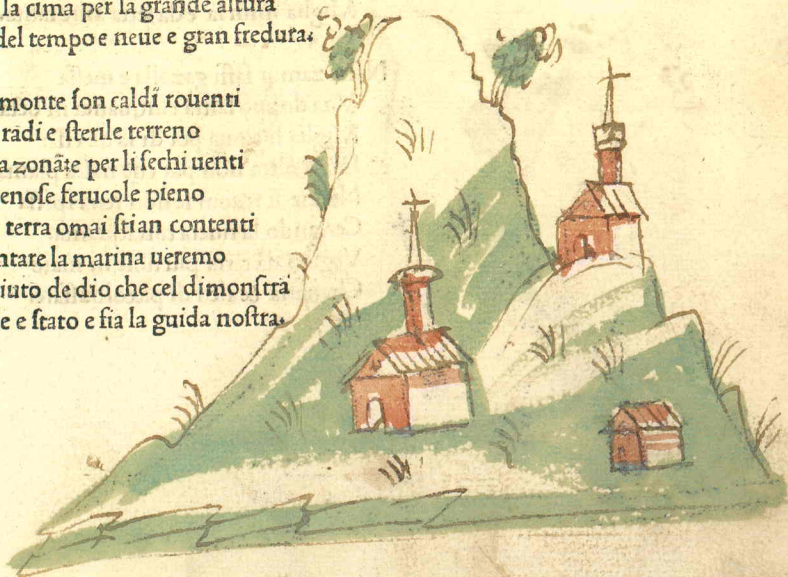 la cima per la grande altura
del tempo e neue e gran fredura.
monte ſon caldi rouenti
radi e ſterile terreno
a zonāte per li ſechi uenti
enoſe ferucole pieno
terra omai ſtian contenti
ntare la marina ueremo
iuto de dio che cel dimonſtra
e e ſtato e ſia la guida noſtra.